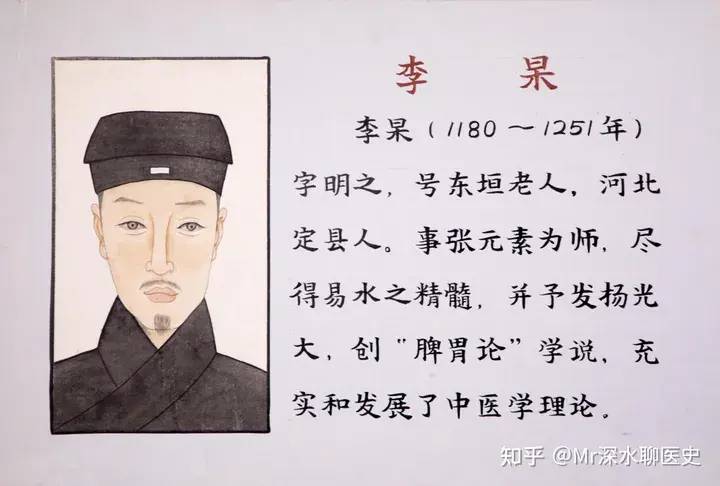 李 杲
李杲（1180～1251年）
字明之，号东垣老人，河北
定县人。事张元素为师，尽
得易水之精髓，并予发扬光
大，创“脾胃论”学说，充
实和发展了中医学理论。
知乎 @Mr深水聊医史